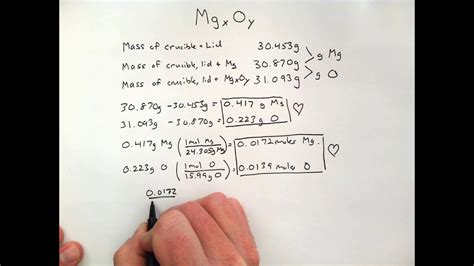 MgxOy
Mass of crucible + Lid 30.453g
Mass of crucible, lid + Mg 30.870g > g Mg
Mass of crucible, lid + MgxOy 31.093g > g O
30.870g - 30.453g = 0.417 g Mg
31.093g - 30.870g = 0.223g O ♡
0.417g Mg (1mol Mg / 24.305g Mg) = 0.0172 moles Mg.
0.223g O (1mol O / 15.99g O) = 0.0139 moles O ♡
0.0172